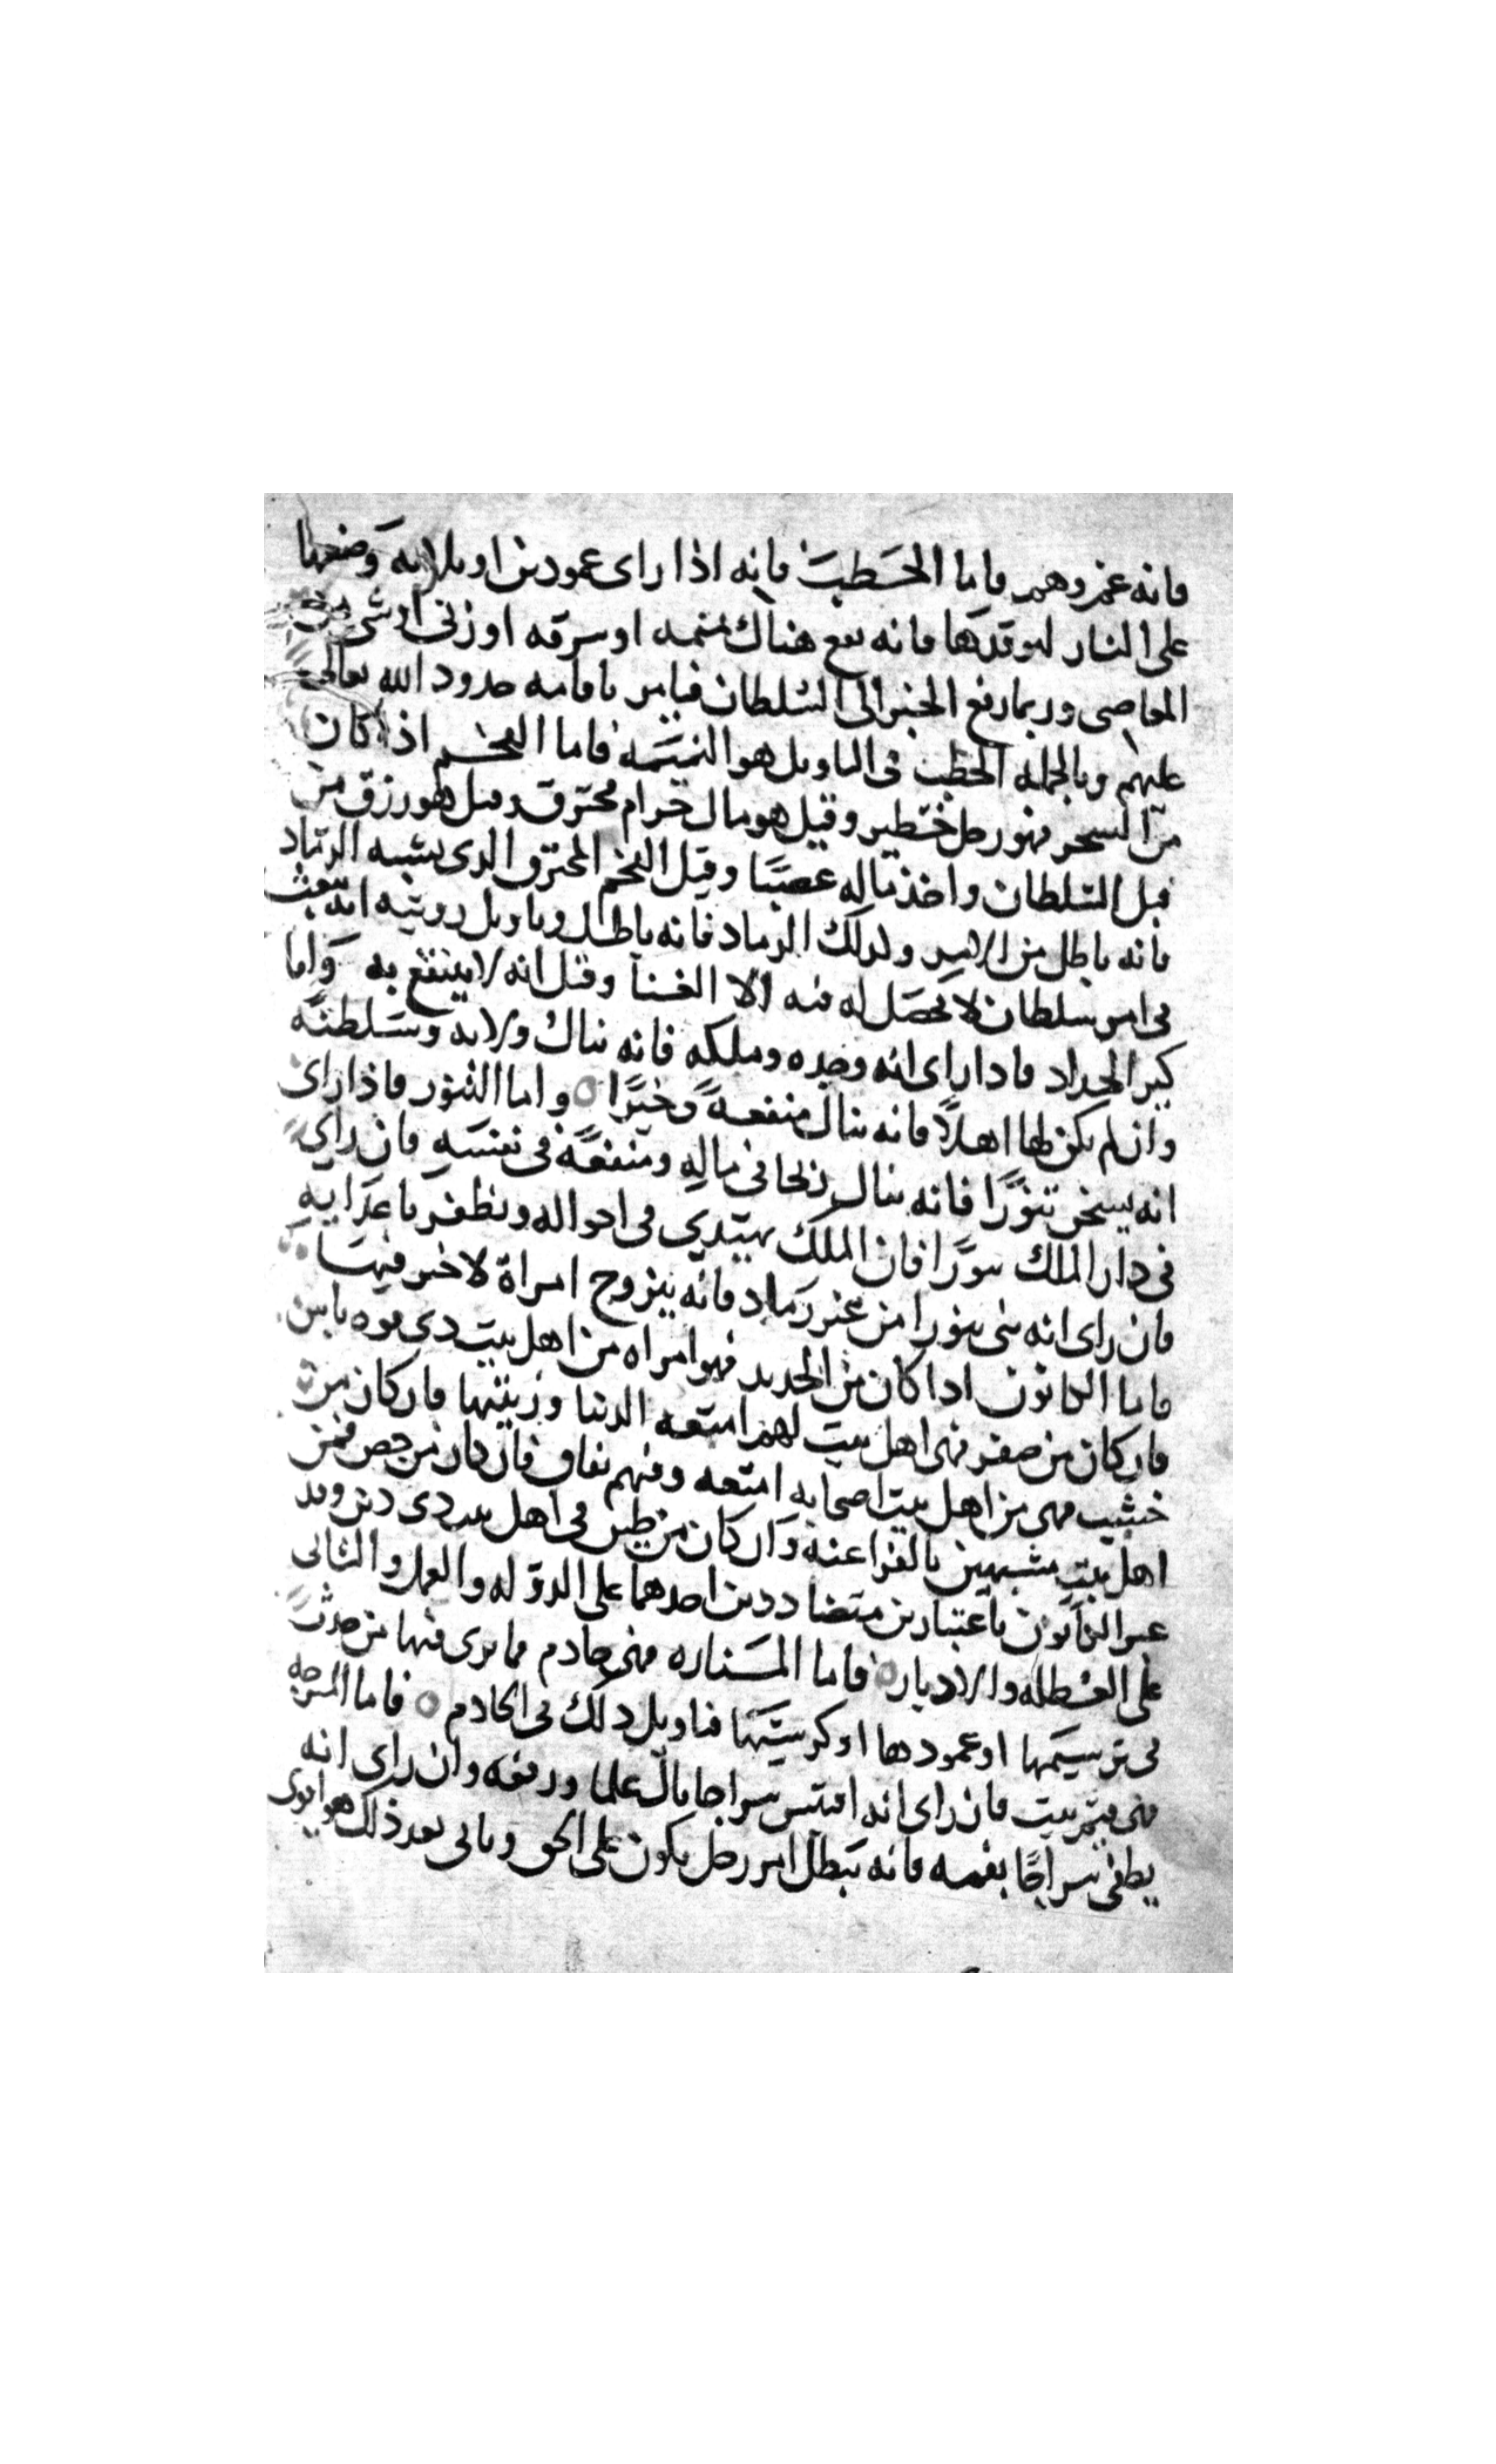 فانه غم وهم فاما الحطب فانه اذا راى عمودين او بلابه وضعها
على النار ليوقدها فانه يقع هناك نميمه او سرقه او زنى او شى من
المعاصى وربما رفع الخبر الى السلطان فيامر باقامه حدود الله تعالى
عليهم وبالجمله الحطب فى التاويل هو النميمه فاما الفحم اذا كان
من الشجر فهو رجل خطير وقيل هو مال حرام محترق وقيل هو رزق من
قبل السلطان واخذ ماله غصبًا وقيل الفحم المحترق الدى يشبه الرماد
فانه باطل من الامر ولدلك الرماد فانه باطل وتاويل رويته انه يتعب
فى امر سلطان لا يحصل له منه الا العنا وقيل انه لا ينتفع به واما
كير الحداد فادا راى انه وجده وملكه فانه ينال ولايه وسلطنة
وان لم يكن لها اهلاً فانه ينال منفعةً وخيرًا واما التنور فاذا راى
انه يسخن تنورًا فانه ينال ربحا فى ماله ومنفعة فى نفسه فان راى
فى دار الملك تنورًا فان الملك يهتدي فى احواله ويظفر باعدايه
فان راى انه بنى تنورا من غير رماد فانه يتزوج امراة لا خير فيها
فاما الكانون ادا كان من الحديد فهو امراه من اهل بيت دى قوه باس
فان كان من صفر فهى اهل بيت لهم امتعه الدنيا وزينتها فان كان من
خشب فهى من اهل بيت اصحابه امتعه وفيهم نفاق فان كان من جص فمن
اهل بيت مشبهين بالفراعنه وان كان من طين فى اهل بيت دى دين وقد
عبر الكانون باعتبارين متضاددين احدهما على الدوله والعمل والثانى
على العطله والادبار فاما المناره فهى خادم فما يرى فيها من حدث
فى ترسيمها او عمودها او كرسيها فتاويل دلك فى الخادم فاما المسرجه
فهى قيم بيت فان راى انه اقتبس سراجا نال علما ورفعه وان راى انه
يطفى سراجًا بفمه فانه يبطل امر رجل يكون على الحق وياتى بعد ذلك هو اقوى